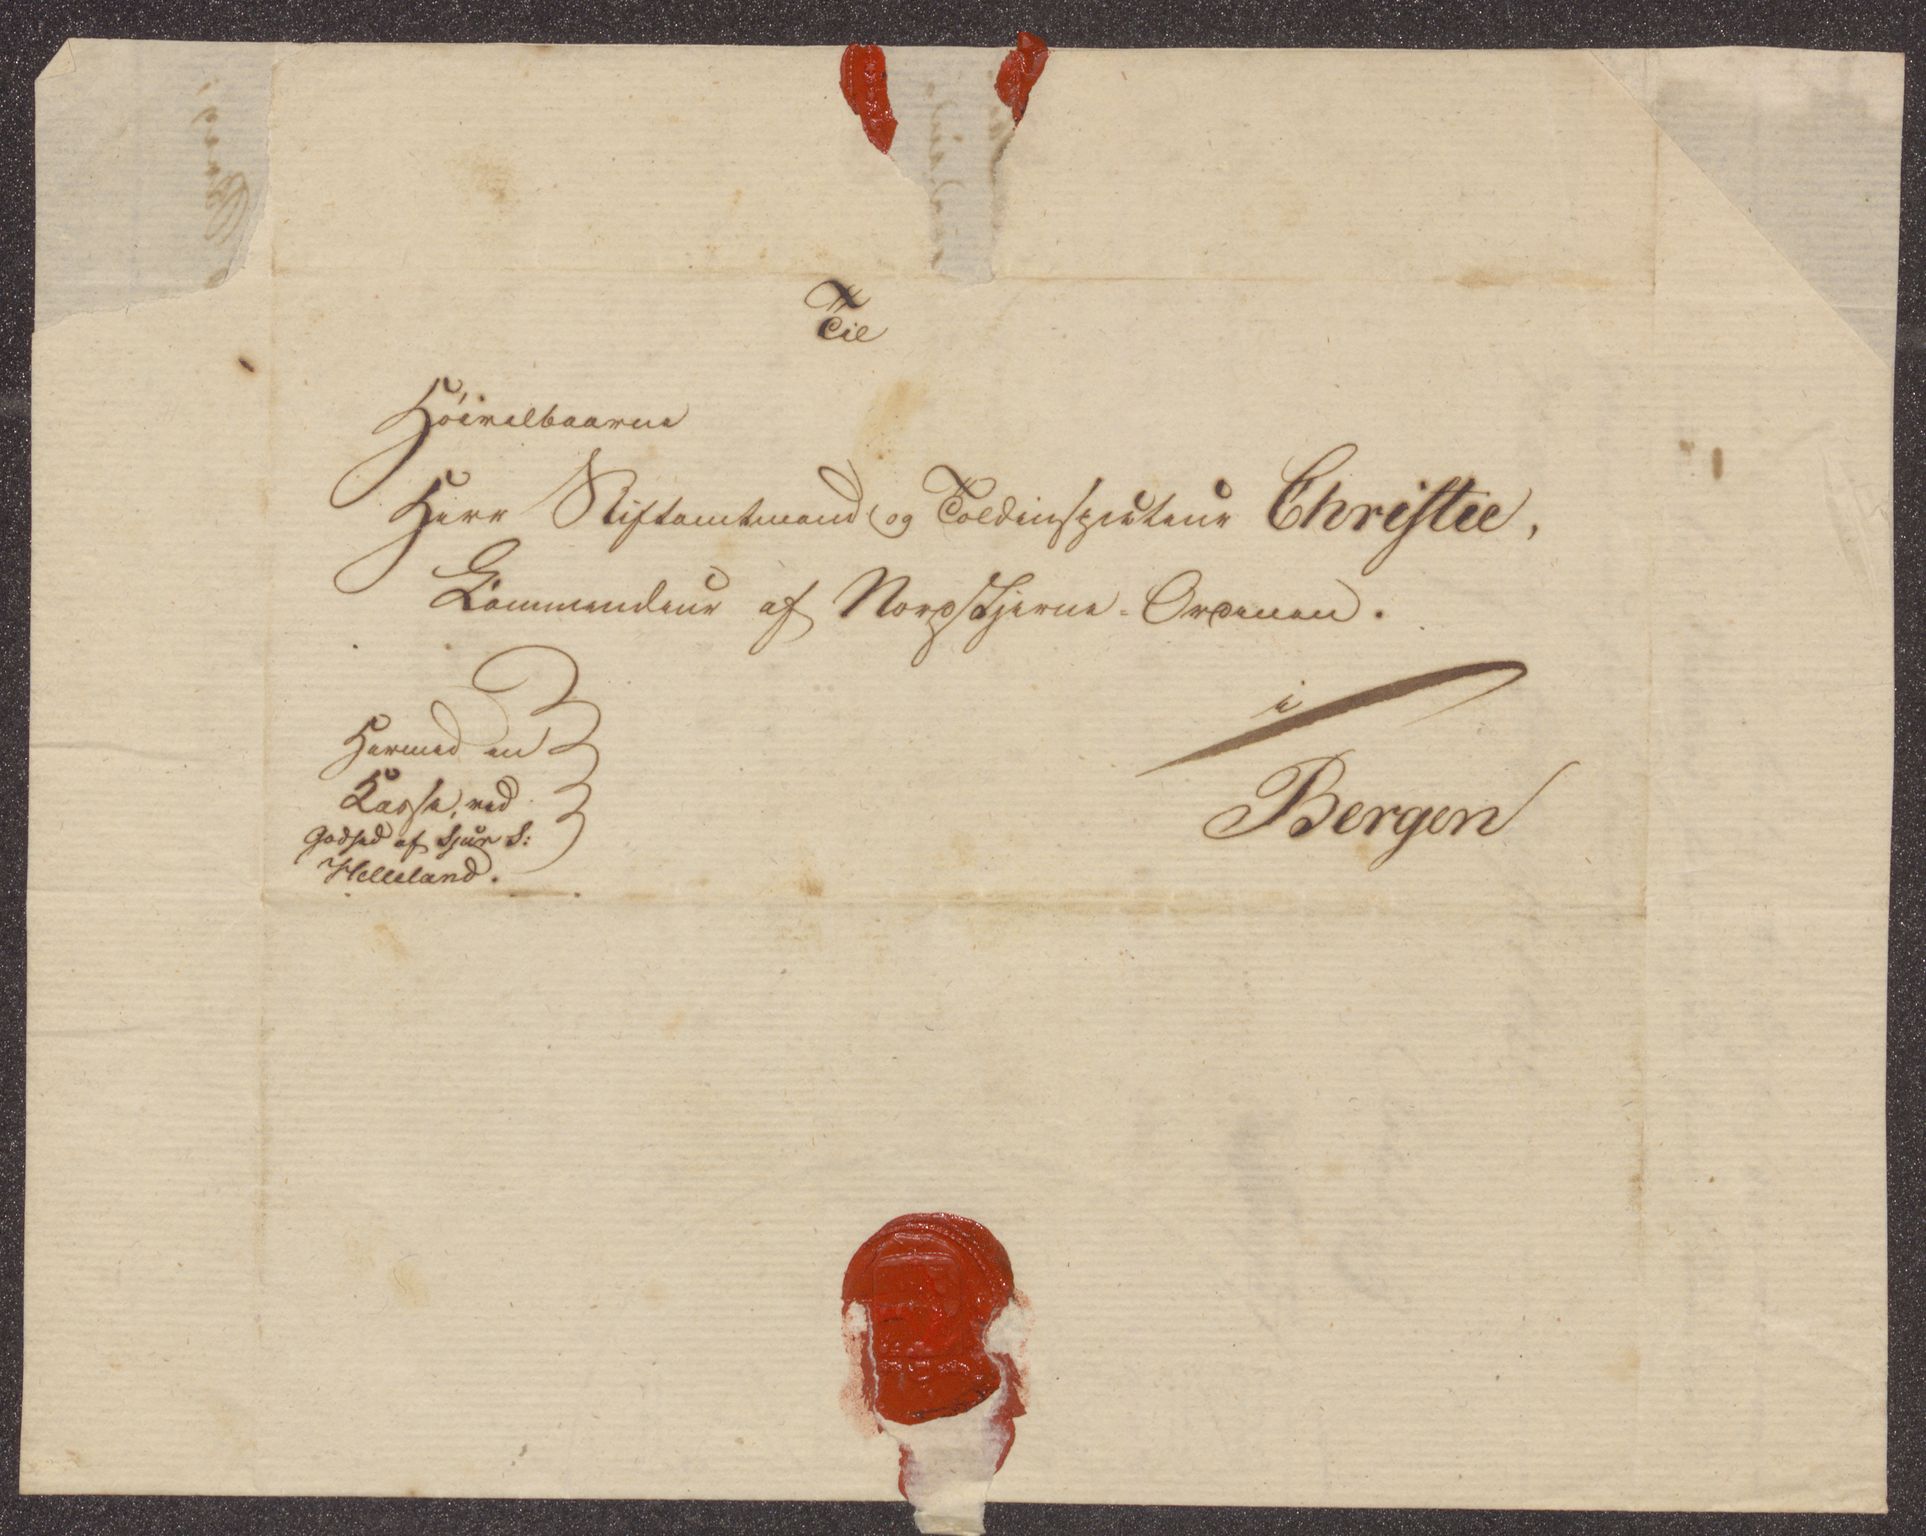 Til
Höivelbaarne
Herr Stiftamtmand og Toldinspecteur Christie,
Commendeur af Nordstjerne-Ordenen.
i
Bergen
Hermed en
Kasse, ved
Godhed af Sjur S:
Helleland.